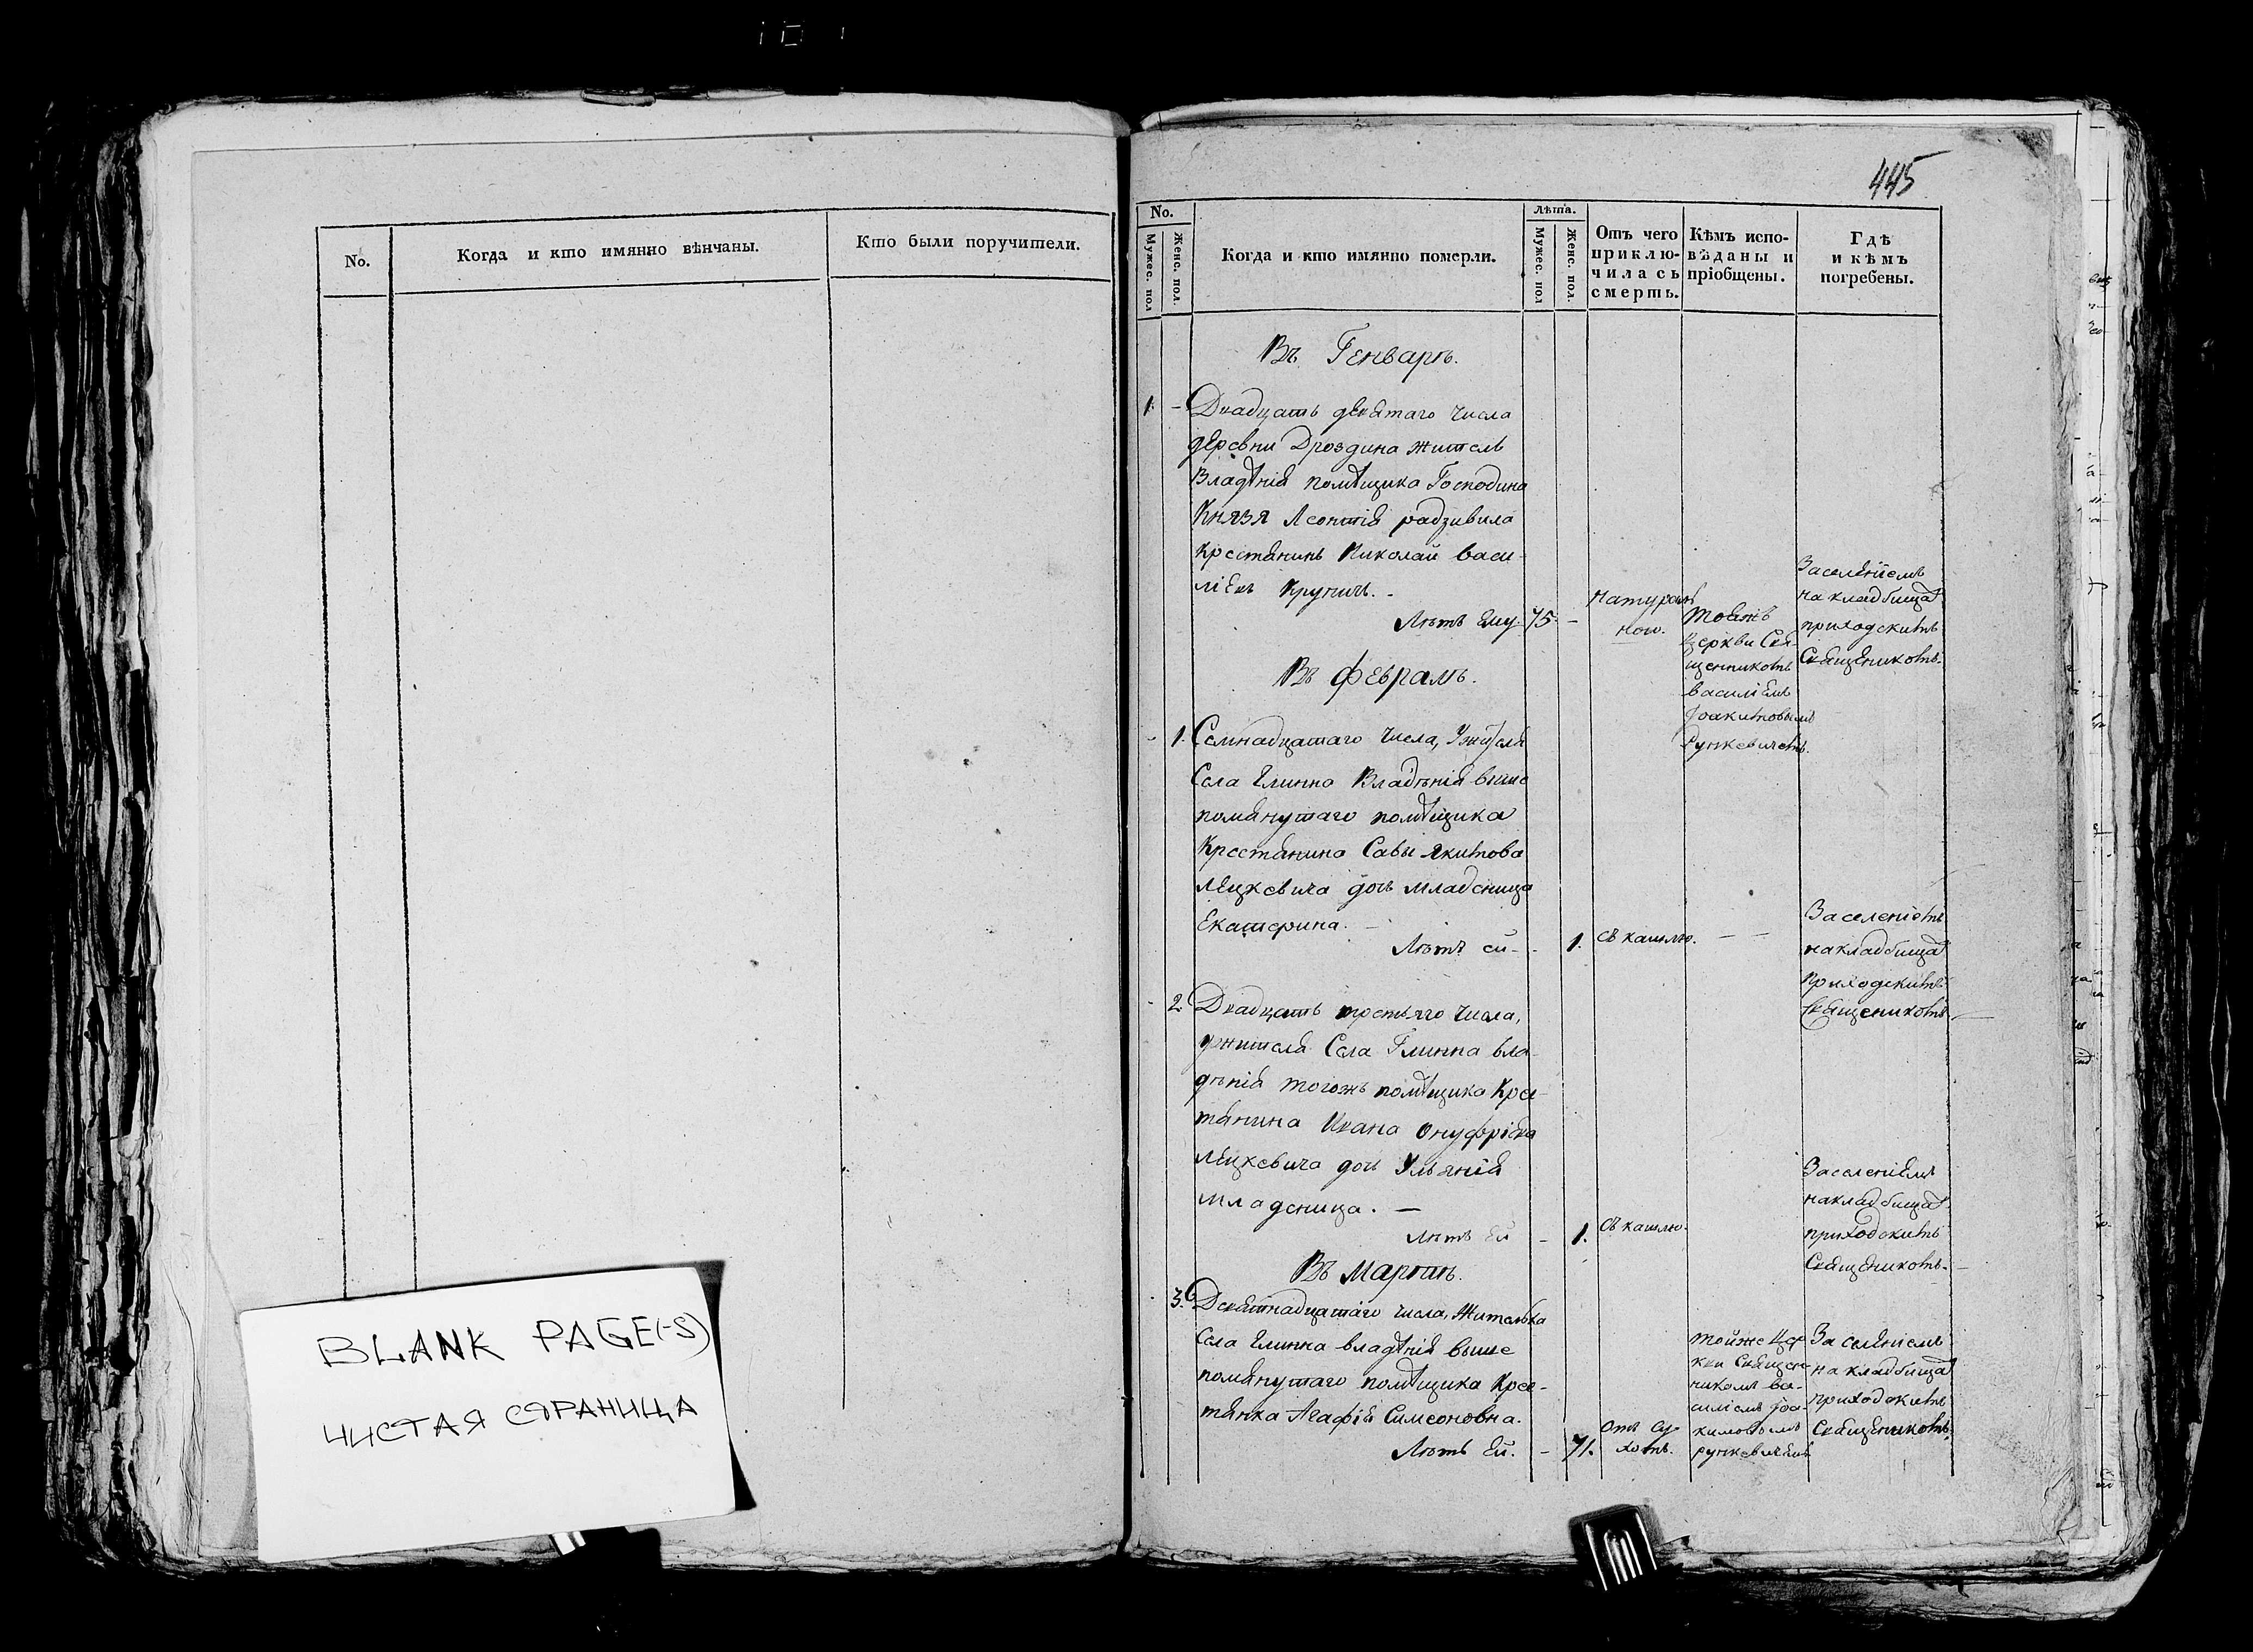 No.
Когда и кто имянно вѣнчаны.
Кто были поручители.
BLANK PAGE(-S)
ЧИСТАЯ СТРАНИЦА
445
No.
Мужес. пол
Женс. пол.
Когда и кто имянно померли.
Лѣта.
Мужес. пол
Женс. пол.
Отъ чего
приклю-
чилась
смерть.
Кѣмъ испо-
вѣданы и
пріобщены.
Гдѣ
и кѣмъ
погребены.
Въ Генварѣ.
1. - Двадцать девятаго числа
деревни Дроздина житель
Владѣнія помѣщика Господина
Князя Леонтія радзивила
Крестянинъ Николай васи-
ліевъ Крупичъ. -
Лѣтъ ему. 75. -
натураль
ною.
тоянѣ
церкви Свя-
щенникомъ
василіемъ
Іоакимовымъ
Рункевичемъ.
Заселеніемъ
на кладбища
приходскимъ
Священикомъ.
Въ Февралѣ.
- 1. Семнадцатаго числа, Ужителя
Села Глинна Владѣнія выше
помянутаго помѣщика
Крестянина Савы Якимова
Лецкевича дочь младеница
Екатерина. -
Лѣтъ ей - - 1.
съ кашлю. - -
Заселеніемъ
на кладбища
Приходскимъ
Священикомъ
- 2. Двадцать третьяго числа,
ужителя Села Глинна вла-
дѣнія тогожъ помѣщика Крес-
тянина Ивана Онуфріева
Лецкевича дочь Ульянія
младеница. -
Лѣтъ Ей - 1.
съ кашлю.
Заселеніемъ
на кладбища
приходскимъ
Священикомъ.
Въ Мартѣ.
- 3. Девятнадцатаго числа, Жителька
Села Глинна владѣнія выше
помянутаго помѣщика Крес-
тянка Агафія Симеоновна.
Лѣтъ Ей. - 71.
Отъ су-
хотъ.
тойже Цер-
кви Священ-
никомъ Ва-
силіемъ Іоа-
кимовымъ
рункевичемъ
За селеніемъ
на кладбища
приходскимъ
Священикомъ.